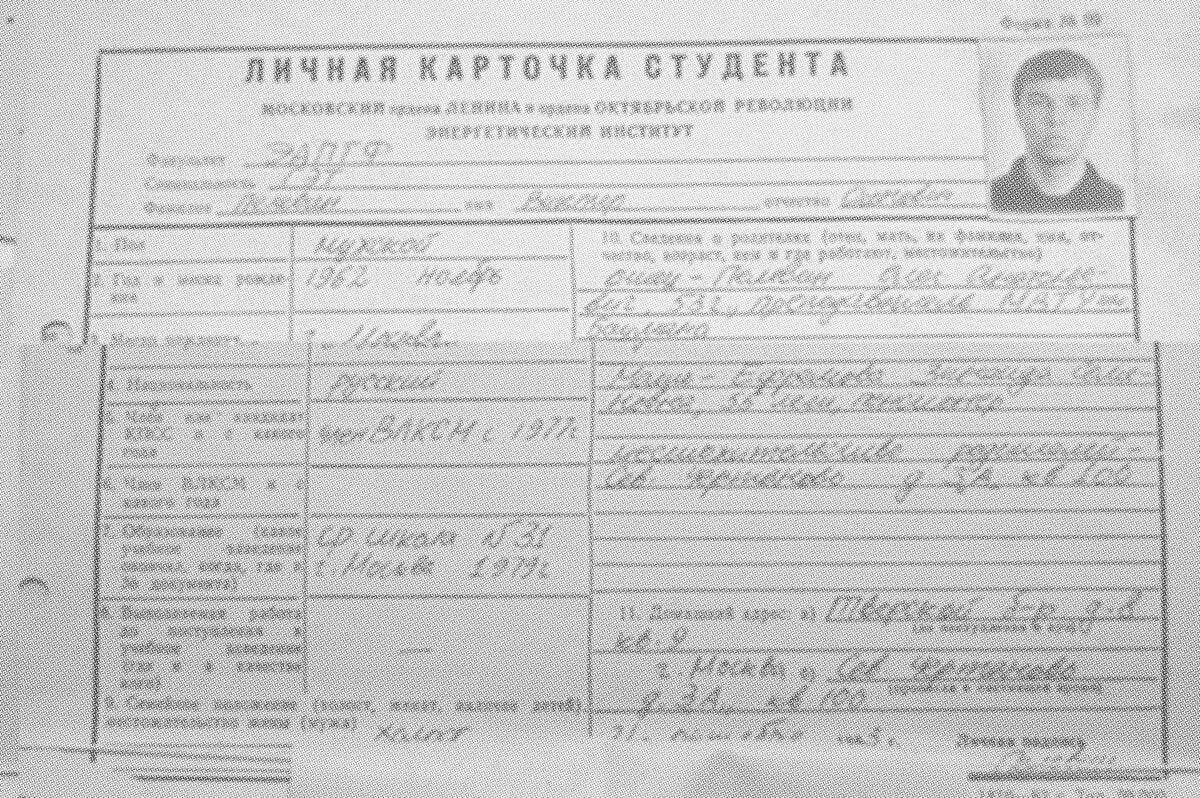 Форма № 99
ЛИЧНАЯ КАРТОЧКА СТУДЕНТА
МОСКОВСКИЙ ордена ЛЕНИНА и ордена ОКТЯБРЬСКОЙ РЕВОЛЮЦИИ
ЭНЕРГЕТИЧЕСКИЙ ИНСТИТУТ
Факультет ЭАПГФ
Специальность ГЭТ
Фамилия Пелевин имя Виктор отчество Олегович
1. Пол мужской
2. Год и месяц рожде-
ния 1962 ноябрь
г. Москва
4. Национальность русский
5. Член или кандидат
КПСС и с какого
года
член ВЛКСМ с 1977г
6. Член ВЛКСМ и с
какого года
7. Образование (какое
учебное заведение
окончил, когда, где и
№ документа)
ср школа № 31
г. Москва 1979г
8. Выполняемая работа
до поступления в
учебное заведение
(где и в качестве
кого)
—
9. Семейное положение (холост, женат, наличие детей)
местожительство жены (мужа)
холост
10. Сведения о родителях (отец, мать, их фамилия, имя, от-
чество, возраст, кем и где работают, местожительство)
отец – Пелевин Олег Анатолье-
вич, 53 г., преподаватель МВТУ им
Баумана
Мать – Ефремова Зинаида Семе-
новна, 56 лет, пенсионер
местожительство родителей –
Сев. Чертаново д 3А, кв 100
11. Домашний адрес: а) Тверской б-р д. 8
(до поступления в вуз)
кв. 9
г. Москва б) Сев Чертаново
(прописка в настоящее время)
д. 3А, кв 100
21. октября 198 г. Личная подпись